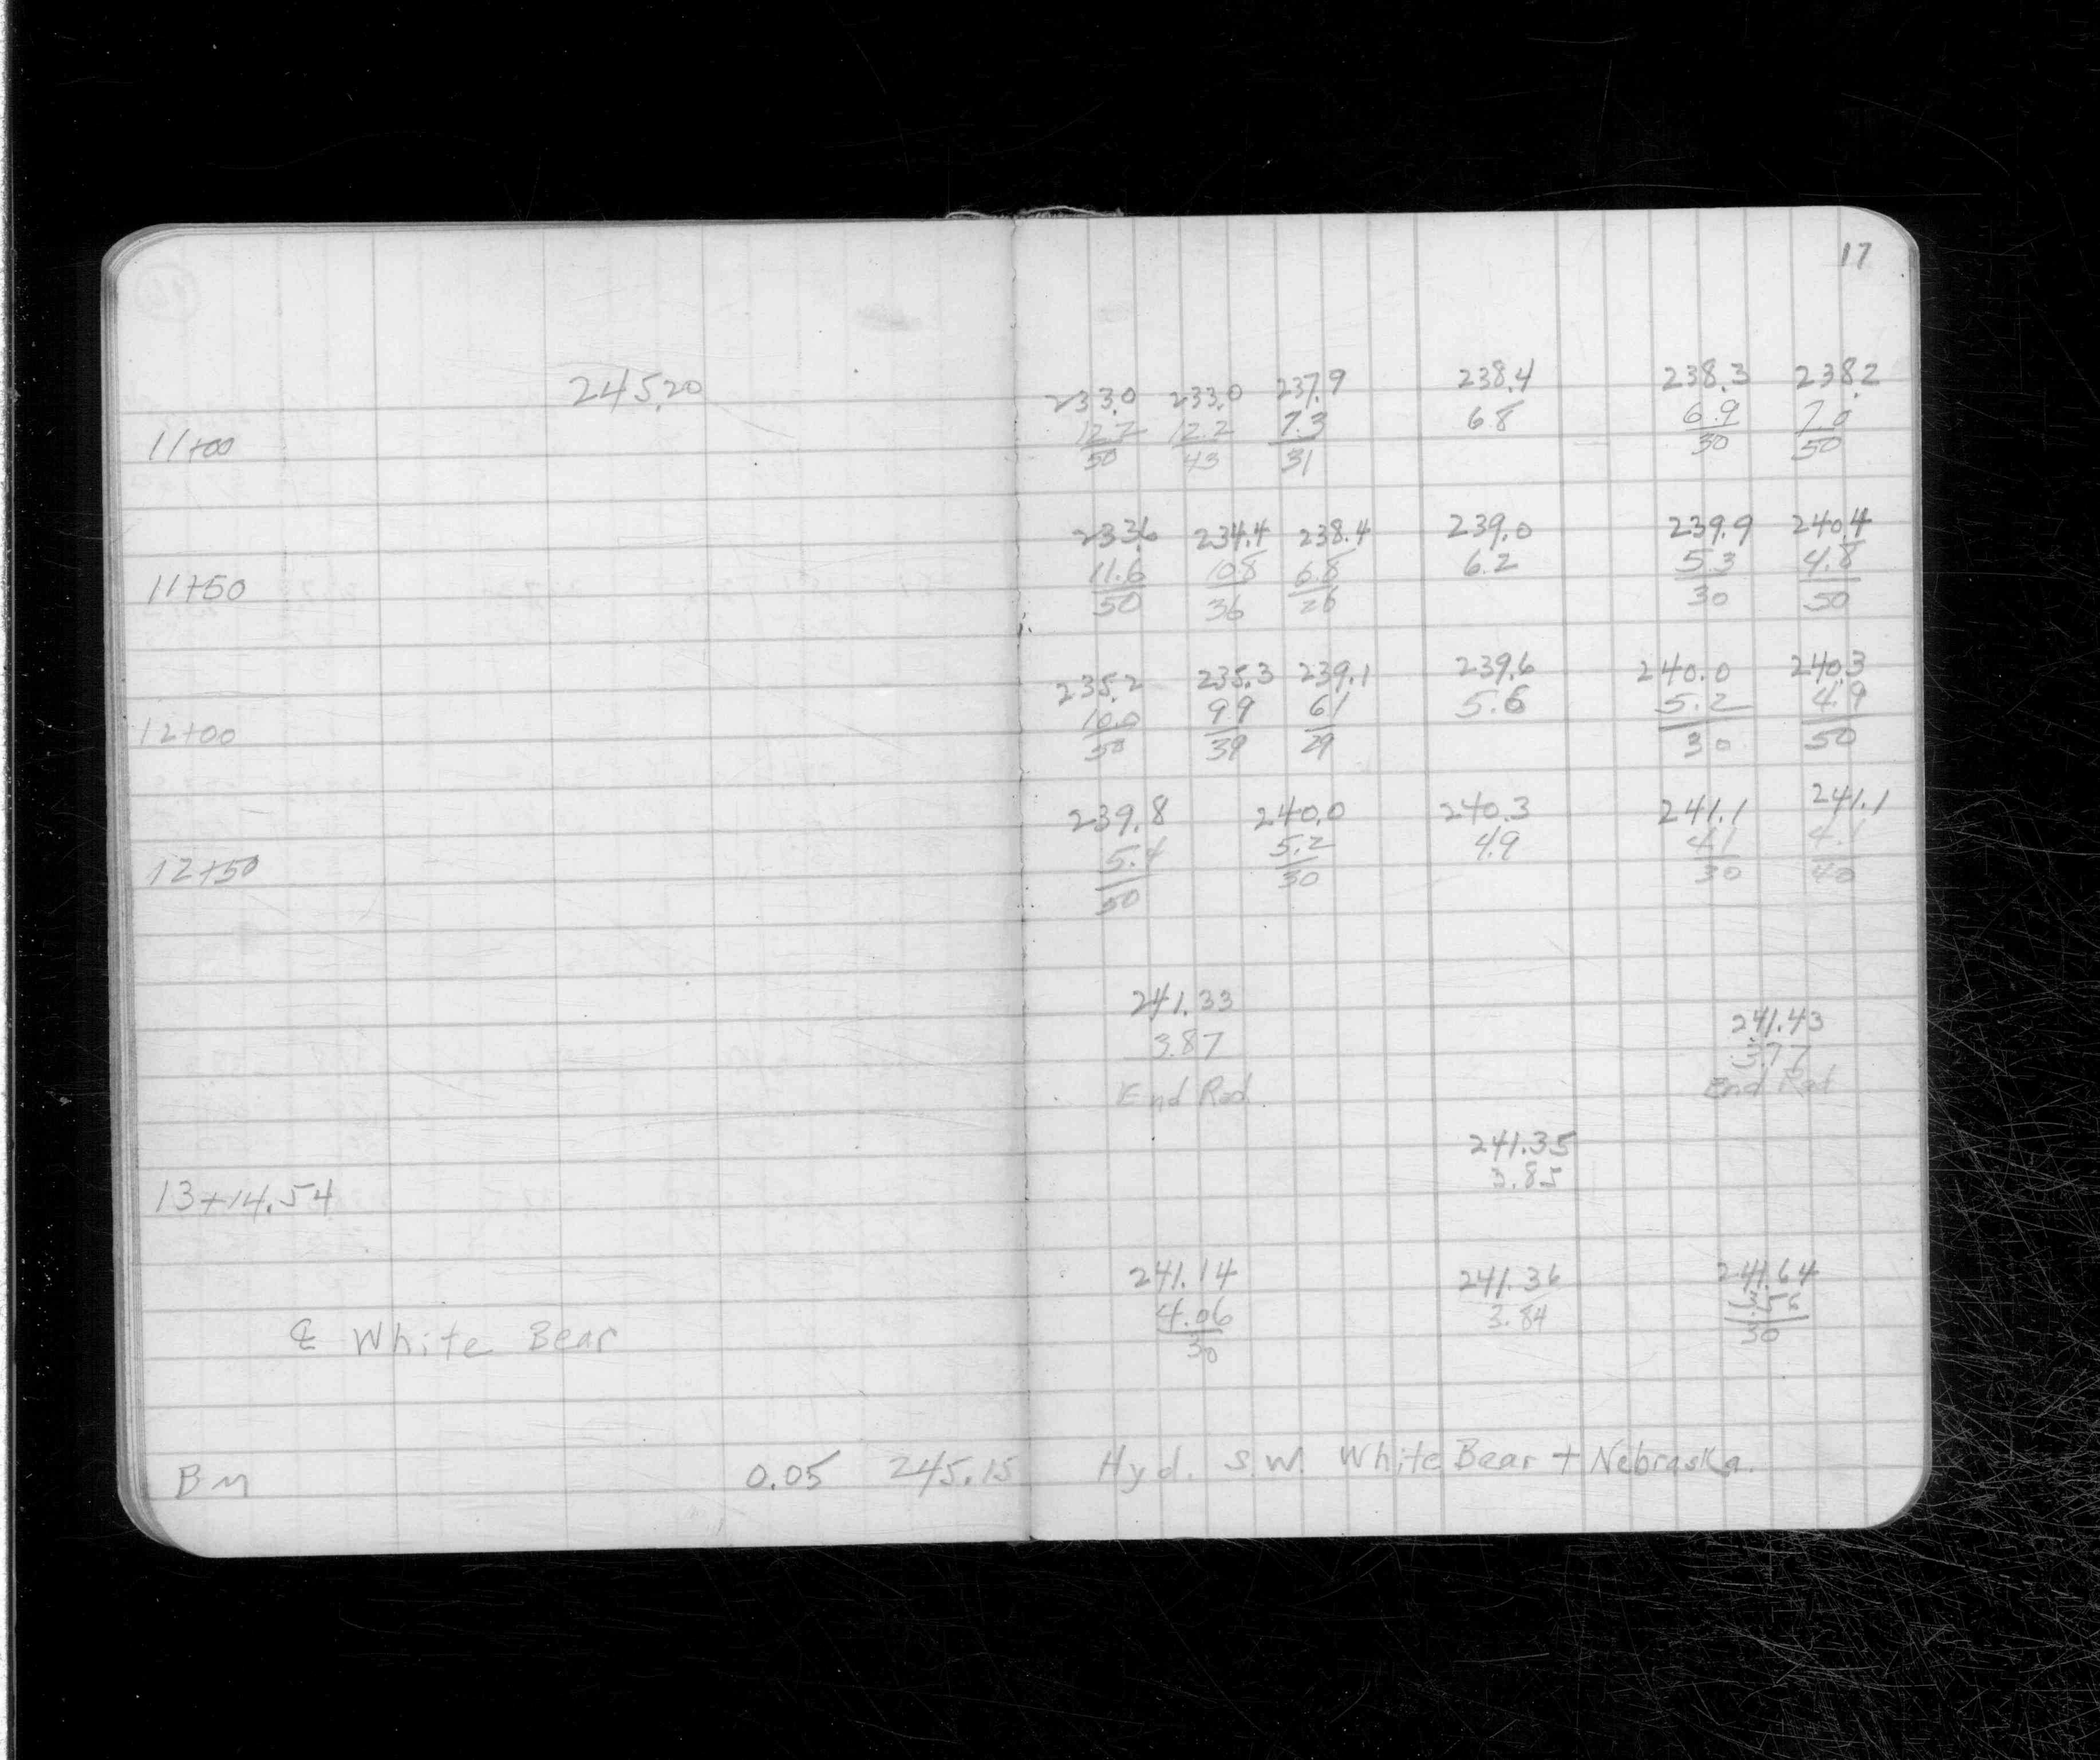 17
245.20
233.0 233.0 237.9 238.4 238.3 238.2
12.2 12.2 7.3 6.8 6.9 7.0
11+00
50 43 31 30 50
233.6 234.4 238.4 239.0 239.9 240.4
11.6 10.8 6.8 6.2 5.3 4.8
11+50
50 36 26 30 50
235.2 235.3 239.1 239.6 240.0 240.3
10.0 9.9 6.1 5.6 5.2 4.9
12+00
50 39 29 30 50
239.8 240.0 240.3 241.1 241.1
5.4 5.2 4.9 4.1 4.1
12+50
50 30 30 40
241.33 241.43
3.87 3.77
End Rad. End Rad
241.35
3.85
13+14.54
241.14 241.36 241.64
4.06 3.84 3.56
30 30
℄ White Bear
BM 0.05 245.15 Hyd. S.W. White Bear + Nebraska.